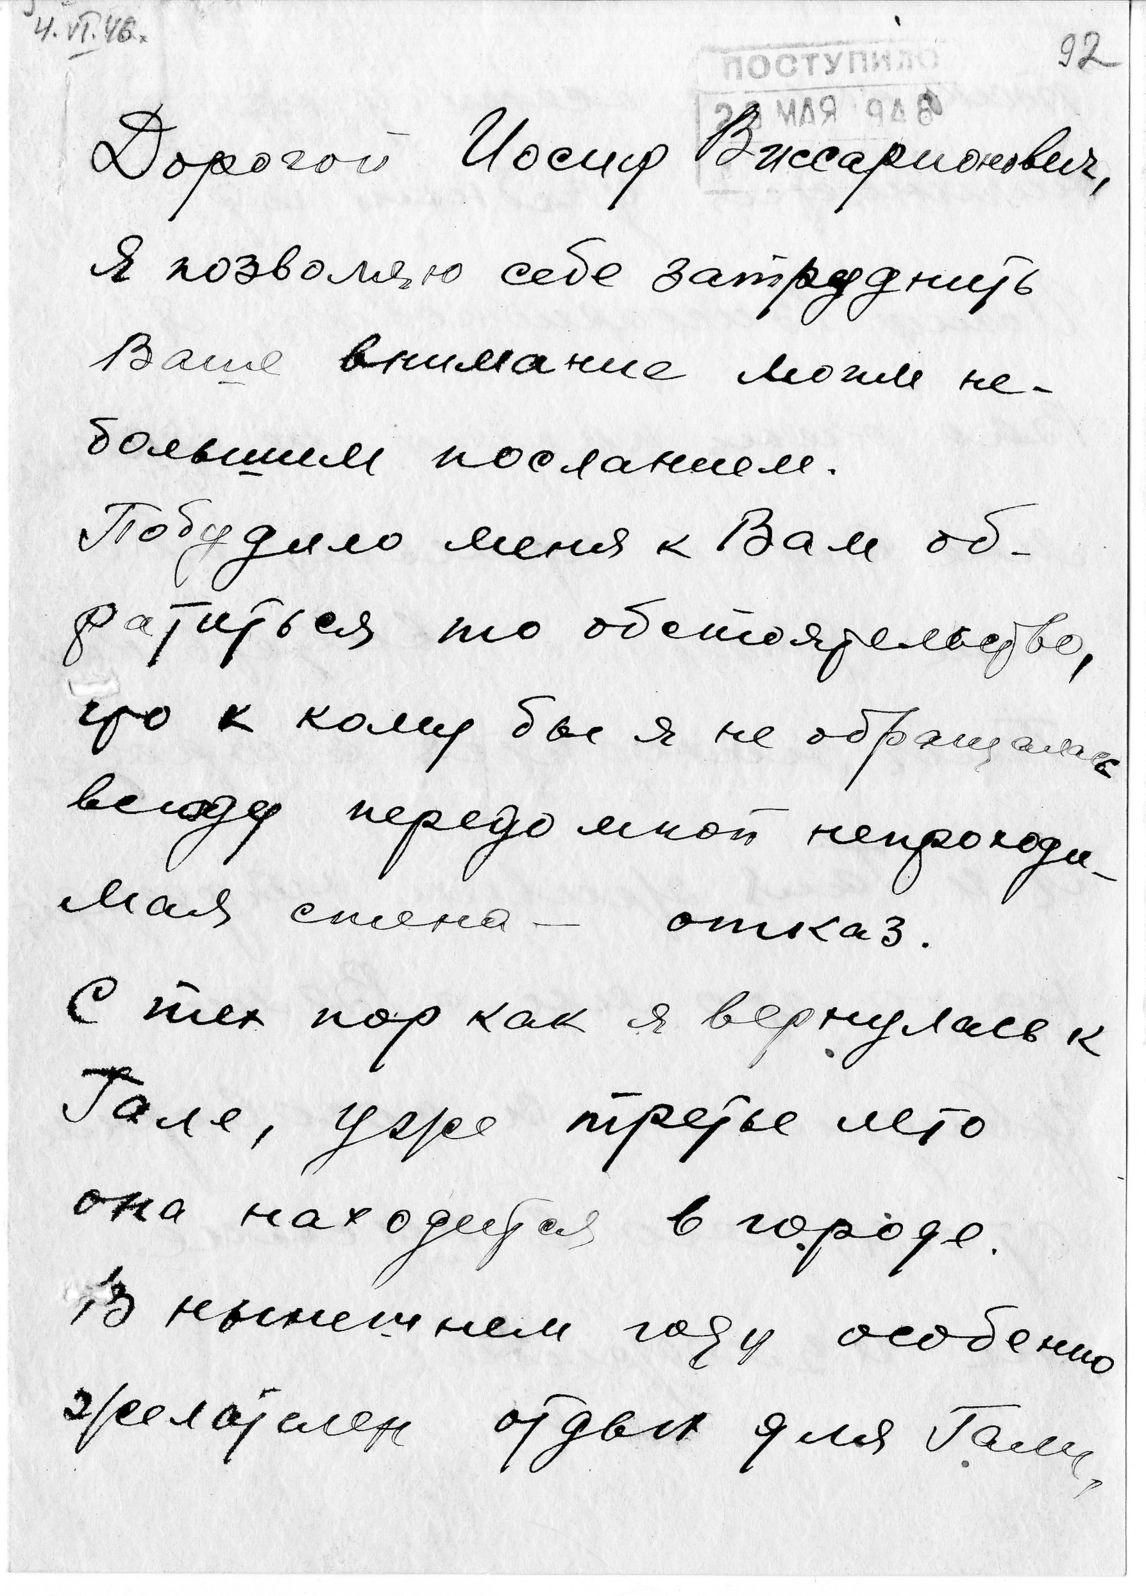 4.VI.46.
92
ПОСТУПИЛО
МАЯ 946
Дорогой Иосиф Виссарионович,
я позволяю себе затруднить
Ваше внимание моим не-
большим посланием.
Побудило меня к Вам об-
ратиться то обстоятельство,
что к кому бы я не обращалась
всюду передо мной непроходи-
мая стена — отказ.
С тех пор как я вернулась к
Гале, уже третье лето
она находится в городе.
В нынешнем году особенно
желателен отдых для Гали,